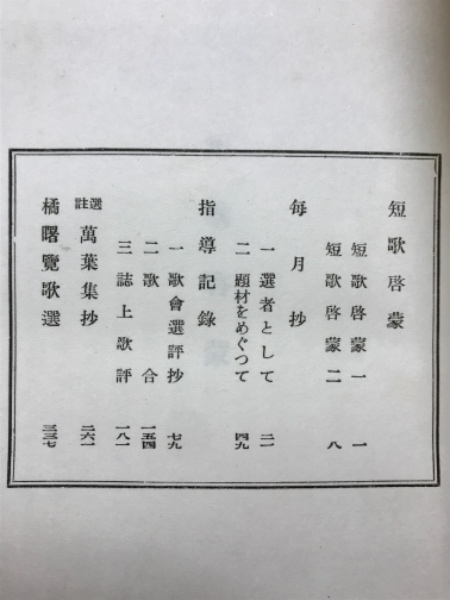 短歌啓蒙
短歌啓蒙一 一
短歌啓蒙二 八
每月抄
一 選者として 二一
二 題材をめぐつて 四九
指導記錄
一 歌會選評抄 七九
二 歌合 一五四
三 誌上歌評 一八一
選註 萬葉集抄 二六一
橘曙覽歌選 三三七